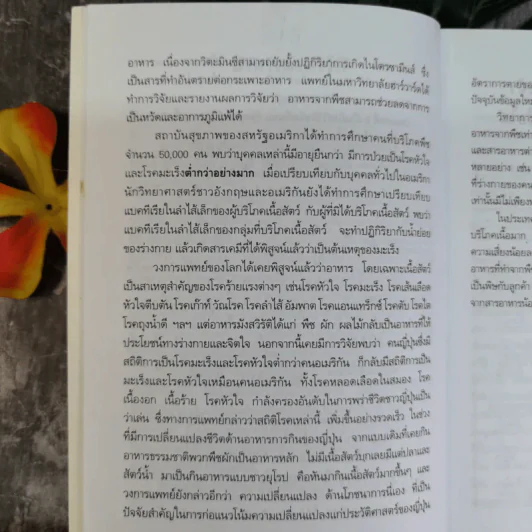 อาหาร เนื่องจากวิตะมินซีสามารถยับยั้งปฏิกิริยาการเกิดไนโตรซามีนส์ ซึ่ง
เป็นสารที่ทำอันตรายต่อกระเพาะอาหาร แพทย์ในมหาวิทยาลัยฮาร์วาร์ดได้
ทำการวิจัยและรายงานผลการวิจัยว่า อาหารจากพืชสามารถช่วยลดจากการ
เป็นหวัดและอาการภูมิแพ้ได้
สถาบันสุขภาพของสหรัฐอเมริกาได้ทำการศึกษาคนที่บริโภคพืช
จำนวน 50,000 คน พบว่าบุคคลเหล่านี้มีอายุยืนกว่า มีการป่วยเป็นโรคหัวใจ
และโรคมะเร็งต่ำกว่าอย่างมาก เมื่อเปรียบเทียบกับบุคคลทั่วไปในอเมริกา
นักวิทยาศาสตร์ชาวอังกฤษและอเมริกันยังได้ทำการศึกษาเปรียบเทียบ
แบคทีเรียในลำไส้เล็กของผู้บริโภคเนื้อสัตว์ กับผู้ที่มิได้บริโภคเนื้อสัตว์ พบว่า
แบคทีเรียในลำไส้เล็กของกลุ่มที่บริโภคเนื้อสัตว์ จะทำปฏิกิริยากับน้ำย่อย
ของร่างกาย แล้วเกิดสารเคมีที่ได้พิสูจน์แล้วว่าเป็นต้นเหตุของมะเร็ง
วงการแพทย์ของโลกได้เคยพิสูจน์แล้วว่าอาหาร โดยเฉพาะเนื้อสัตว์
เป็นสาเหตุสำคัญของโรคร้ายแรงต่างๆ เช่นโรคหัวใจ โรคมะเร็ง โรคเส้นเลือด
หัวใจตีบตัน โรคเก๊าท์ วัณโรค โรคลำไส้ อัมพาต โรคแอนแทร็กซ์ โรคตับ โรคไต
โรคถุงน้ำดี ฯลฯ แต่อาหารมังสวิรัติได้แก่ พืช ผัก ผลไม้กลับเป็นอาหารที่ให้
ประโยชน์ทางร่างกายและจิตใจ นอกจากนี้เคยมีการวิจัยพบว่า คนญี่ปุ่นซึ่งมี
สถิติการเป็นโรคมะเร็งและโรคหัวใจต่ำกว่าคนอเมริกัน ก็กลับมีสถิติการเป็น
มะเร็งและโรคหัวใจเหมือนคนอเมริกัน ทั้งโรคหลอดเลือดในสมอง โรค
เนื้องอก เนื้อร้าย โรคหัวใจ กำลังครองอันดับในการพร่าชีวิตชาวญี่ปุ่นเป็น
ว่าเล่น ซึ่งทางการแพทย์กล่าวว่าสถิติโรคเหล่านี้ เพิ่มขึ้นอย่างรวดเร็ว ในช่วง
ที่มีการเปลี่ยนแปลงชีวิตด้านอาหารการกินของญี่ปุ่น จากแบบเดิมที่เคยกิน
อาหารธรรมชาติพวกพืชผักเป็นอาหารหลัก ไม่มีเนื้อสัตว์บุกเลยมีแต่ปลาและ
สัตว์น้ำ มาเป็นกินอาหารแบบชาวยุโรป คือหันมากินเนื้อสัตว์มากขึ้นๆ และ
วงการแพทย์ยังกล่าวอีกว่า ความเปลี่ยนแปลง ด้านโภชนาการนี่เอง ที่เป็น
ปัจจัยสำคัญในการก่อแนวโน้มความเปลี่ยนแปลงแก่ประวัติศาสตร์ของญี่ปุ่น
อัตราการตายของ
ปัจจุบันข้อมูลใหม่
วิทยาการ
อาหารจากพืชเท่า
และสารอาหารต่า
หลายอย่าง เช่น
ที่ร่างกายของคน
เท่านั้นมีไม่เพียงพ
ในประเท
บริโภคเนื้อมาก
ความเสี่ยงน้อยล
อาหารที่ทำจากพื
เป็นพิษกับลูกค้า
จากสารอาหารน้อ